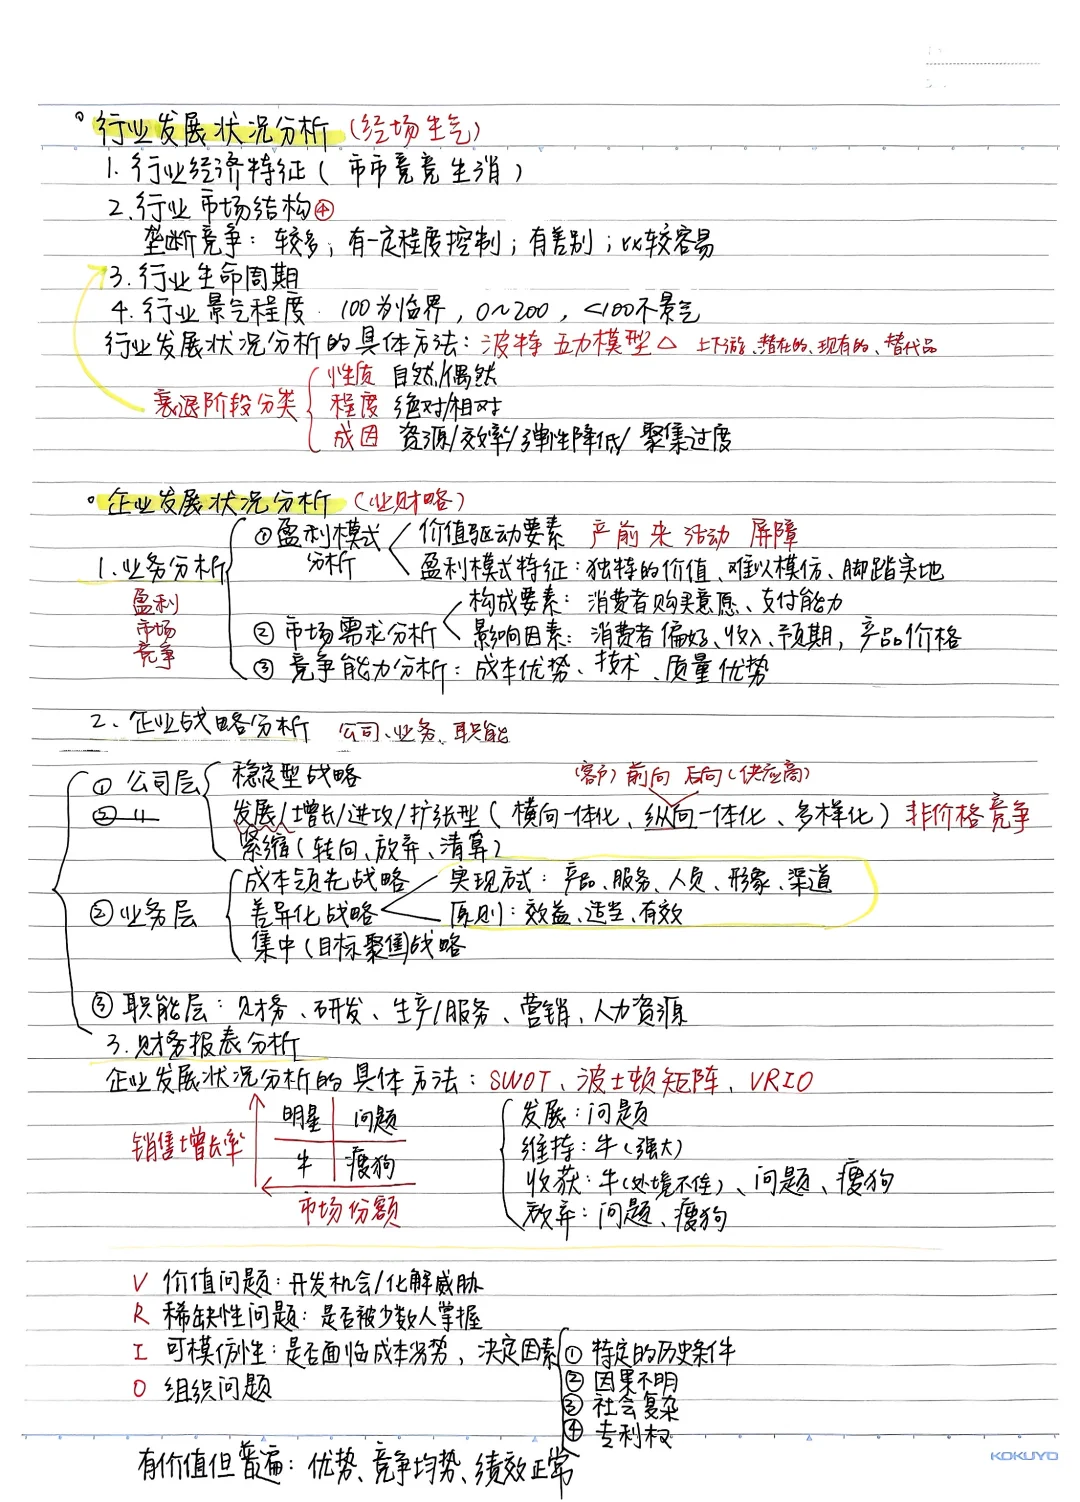 行业发展状况分析（经场生气）
1. 行业经济特征（市市竞竞生消）
2. 行业市场结构④
垄断竞争：较多；有一定程度控制；有差别；较容易
3. 行业生命周期
4. 行业景气程度 100为临界，0~200，<100不景气
行业发展状况分析的具体方法：波特五力模型△ 上下游、潜在的、现有的、替代品
衰退阶段分类
性质 自然/偶然
程度 绝对/相对
成因 资源/效率/弹性降低/聚集过度
企业发展状况分析（业财略）
1. 业务分析
盈利
市场
竞争
①盈利模式分析
价值驱动要素 产前来活动屏障
盈利模式特征：独特的价值、难以模仿、脚踏实地
②市场需求分析
构成要素：消费者购买意愿、支付能力
影响因素：消费者偏好、收入、预期，产品价格
③竞争能力分析：成本优势、技术、质量优势
2、企业战略分析 公司、业务、职能
①公司层
稳定型战略
（客户）前向 后向（供应商）
发展/增长/进攻/扩张型（横向一体化、纵向一体化、多样化）非价格竞争
紧缩（转向、放弃、清算）
②业务层
成本领先战略
差异化战略
实现方式：产品、服务、人员、形象、渠道
原则：效益、适当、有效
集中（目标聚焦）战略
③职能层：财务、研发、生产/服务、营销、人力资源
3. 财务报表分析
企业发展状况分析的具体方法：SWOT、波士顿矩阵、VRIO
销售增长率
明星 问题
牛 瘦狗
市场份额
发展：问题
维持：牛（强大）
收获：牛（处境不佳）、问题、瘦狗
放弃：问题、瘦狗
V 价值问题：开发机会/化解威胁
R 稀缺性问题：是否被少数人掌握
I 可模仿性：是否面临成本劣势，决定因素
①特定的历史条件
②因果不明
③社会复杂
④专利权
O 组织问题
有价值但普遍：优势、竞争均势、绩效正常
KOKUYO